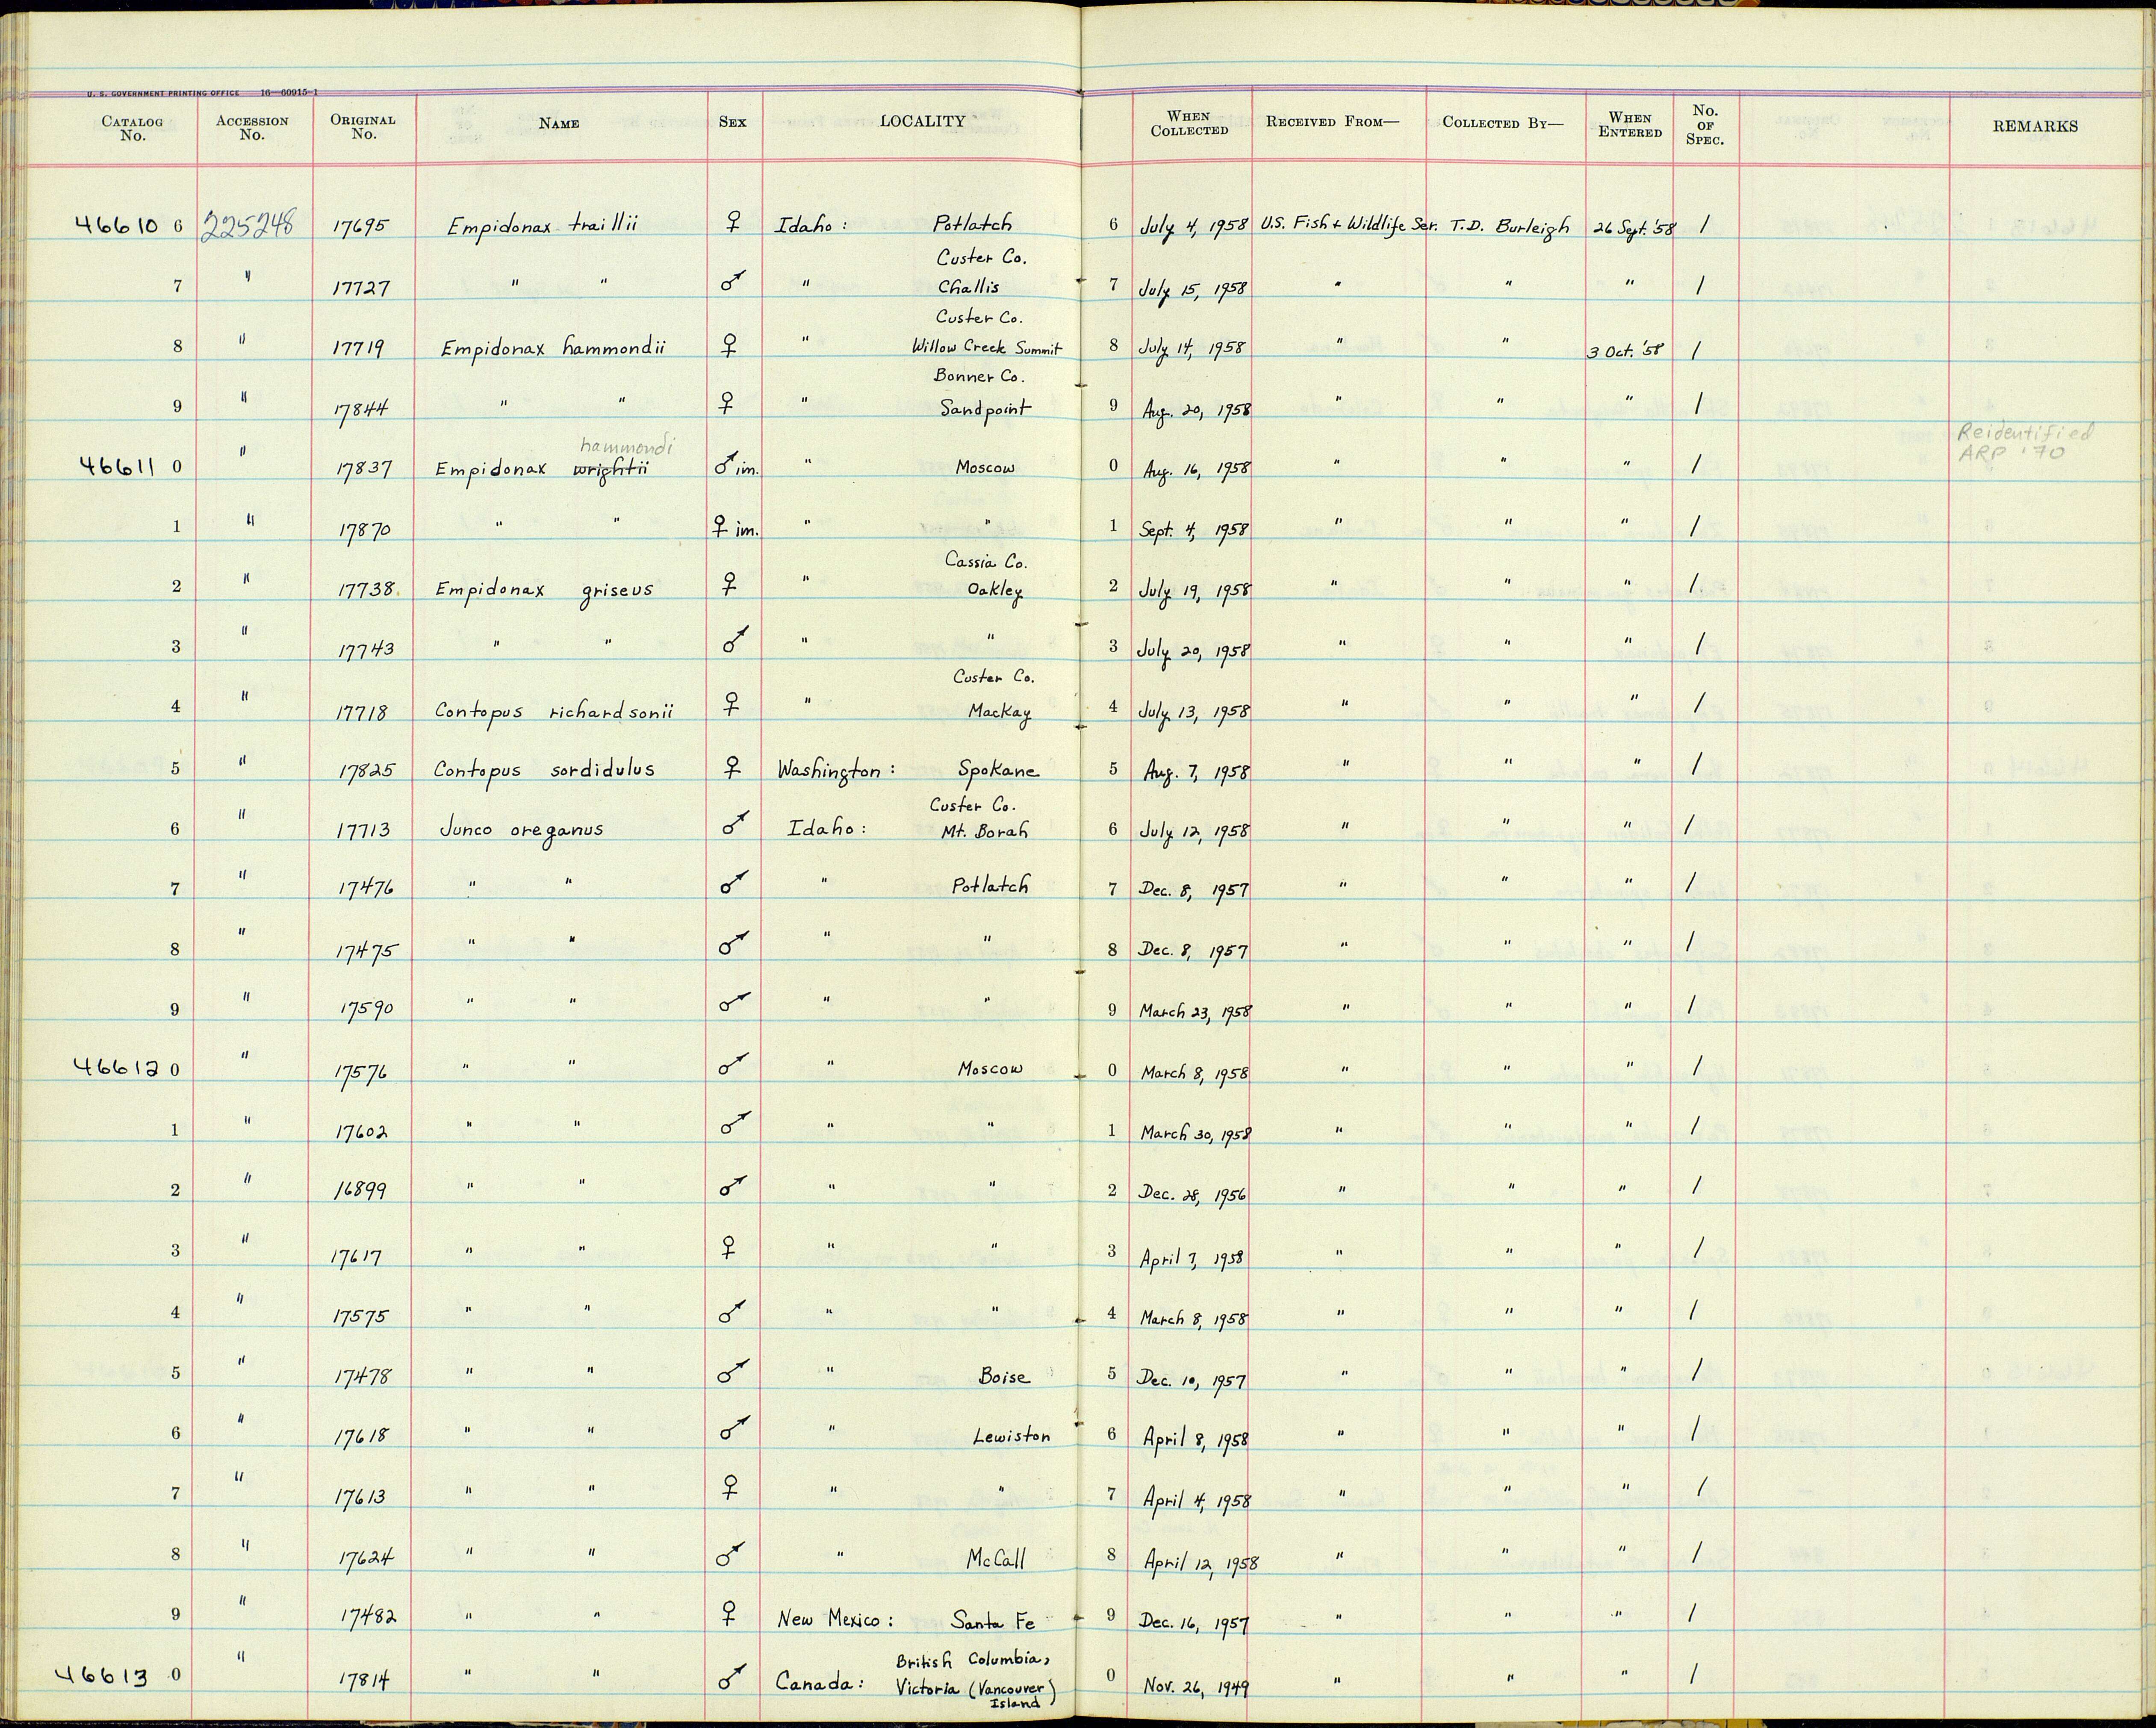 U. S. GOVERNMENT PRINTING OFFICE 16—60915-1
CATALOG No. ACCESSION No. ORIGINAL No. NAME SEX LOCALITY WHEN COLLECTED RECEIVED FROM— COLLECTED BY— WHEN ENTERED No. OF SPEC. REMARKS
46610 6 225248 17695 Empidonax traillii ♀ Idaho : Potlatch 6 July 4, 1958 U.S. Fish + Wildlife Ser. T.D. Burleigh 26 Sept. '58 1
Custer Co.
7 " 17727 " " ♂ " Challis 7 July 15, 1958 " " " 1
Custer Co.
8 " 17719 Empidonax hammondii ♀ " Willow Creek Summit 8 July 14, 1958 " " 3 Oct. '58 1
Bonner Co.
9 " 17844 " " ♀ " Sandpoint 9 Aug. 20, 1958 " " " 1
hammondi Reidentified
46611 0 " 17837 Empidonax wrightii ♂ im. " Moscow 0 Aug. 16, 1958 " " " 1 ARP '70
1 " 17870 " " ♀ im. " " 1 Sept. 4, 1958 " " " 1
Cassia Co.
2 " 17738 Empidonax griseus ♀ " Oakley 2 July 19, 1958 " " " 1
3 " 17743 " " ♂ " " 3 July 20, 1958 " " " 1
Custer Co.
4 " 17718 Contopus richardsonii ♀ " Mackay 4 July 13, 1958 " " " 1
5 " 17825 Contopus sordidulus ♀ Washington : Spokane 5 Aug. 7, 1958 " " " 1
Custer Co.
6 " 17713 Junco oreganus ♂ Idaho : Mt. Borah 6 July 12, 1958 " " " 1
7 " 17476 " " ♂ " Potlatch 7 Dec. 8, 1957 " " " 1
8 " 17475 " " ♂ " " 8 Dec. 8, 1957 " " " 1
9 " 17590 " " ♂ " " 9 March 23, 1958 " " " 1
46612 0 " 17576 " " ♂ " Moscow 0 March 8, 1958 " " " 1
1 " 17602 " " ♂ " " 1 March 30, 1958 " " " 1
2 " 16899 " " ♂ " " 2 Dec. 28, 1956 " " " 1
3 " 17617 " " ♀ " " 3 April 7, 1958 " " " 1
4 " 17575 " " ♂ " " 4 March 8, 1958 " " " 1
5 " 17478 " " ♂ " Boise 5 Dec. 10, 1957 " " " 1
6 " 17618 " " ♂ " Lewiston 6 April 8, 1958 " " " 1
7 " 17613 " " ♀ " " 7 April 4, 1958 " " " 1
8 " 17624 " " ♂ " McCall 8 April 12, 1958 " " " 1
9 " 17482 " " ♀ New Mexico : Santa Fe 9 Dec. 16, 1957 " " " 1
British Columbia,
46613 0 " 17814 " " ♂ Canada : Victoria (Vancouver 0 Nov. 26, 1949 " " " 1
Island)